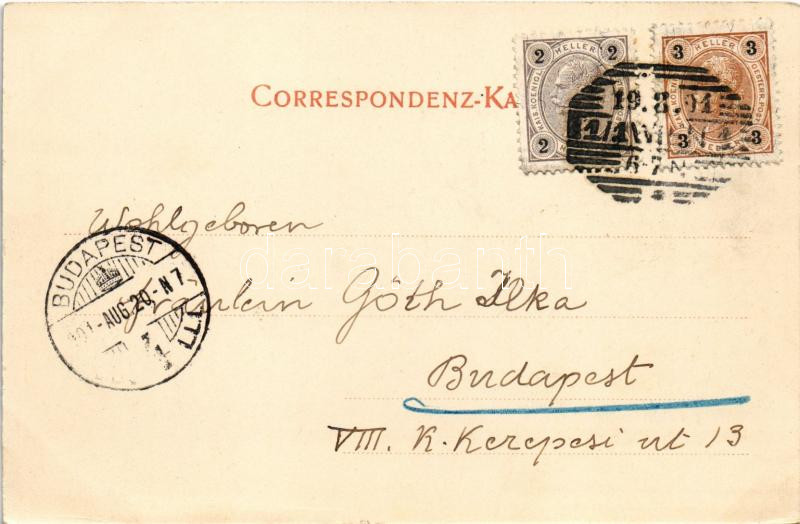 CORRESPONDENZ-KA
2 HELLER 2
2 2
3 HELLER 3
3 3
19.8.01
6-7N
Wohlgeboren
darabanth
BUDAPEST
901-AUG.20.-N7
Fräulein Góth Ilka
Budapest
VIII. K. Kerepesi ut 13